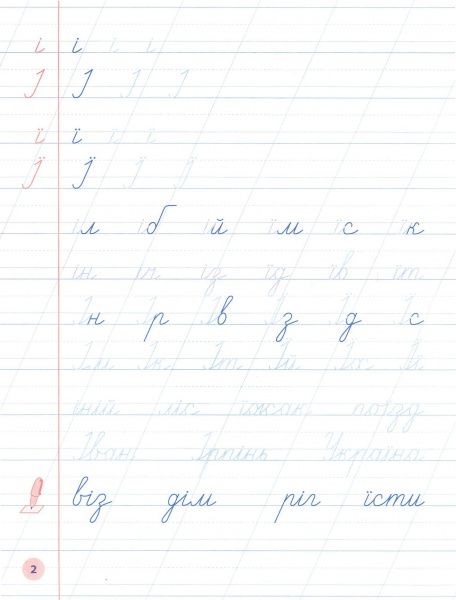 і і і і
І І І І
ї ї ї ї
Ї Ї Ї Ї
іл іб ій їм їс їк
ін іч із їд їв їт
Ін Ір Ів Їз Їд Їс
Ім Ік Іт Їй Їх Їй
іній ліс їжак поїзд
Іван Ірпінь Україна
віз дім ріг їсти
2